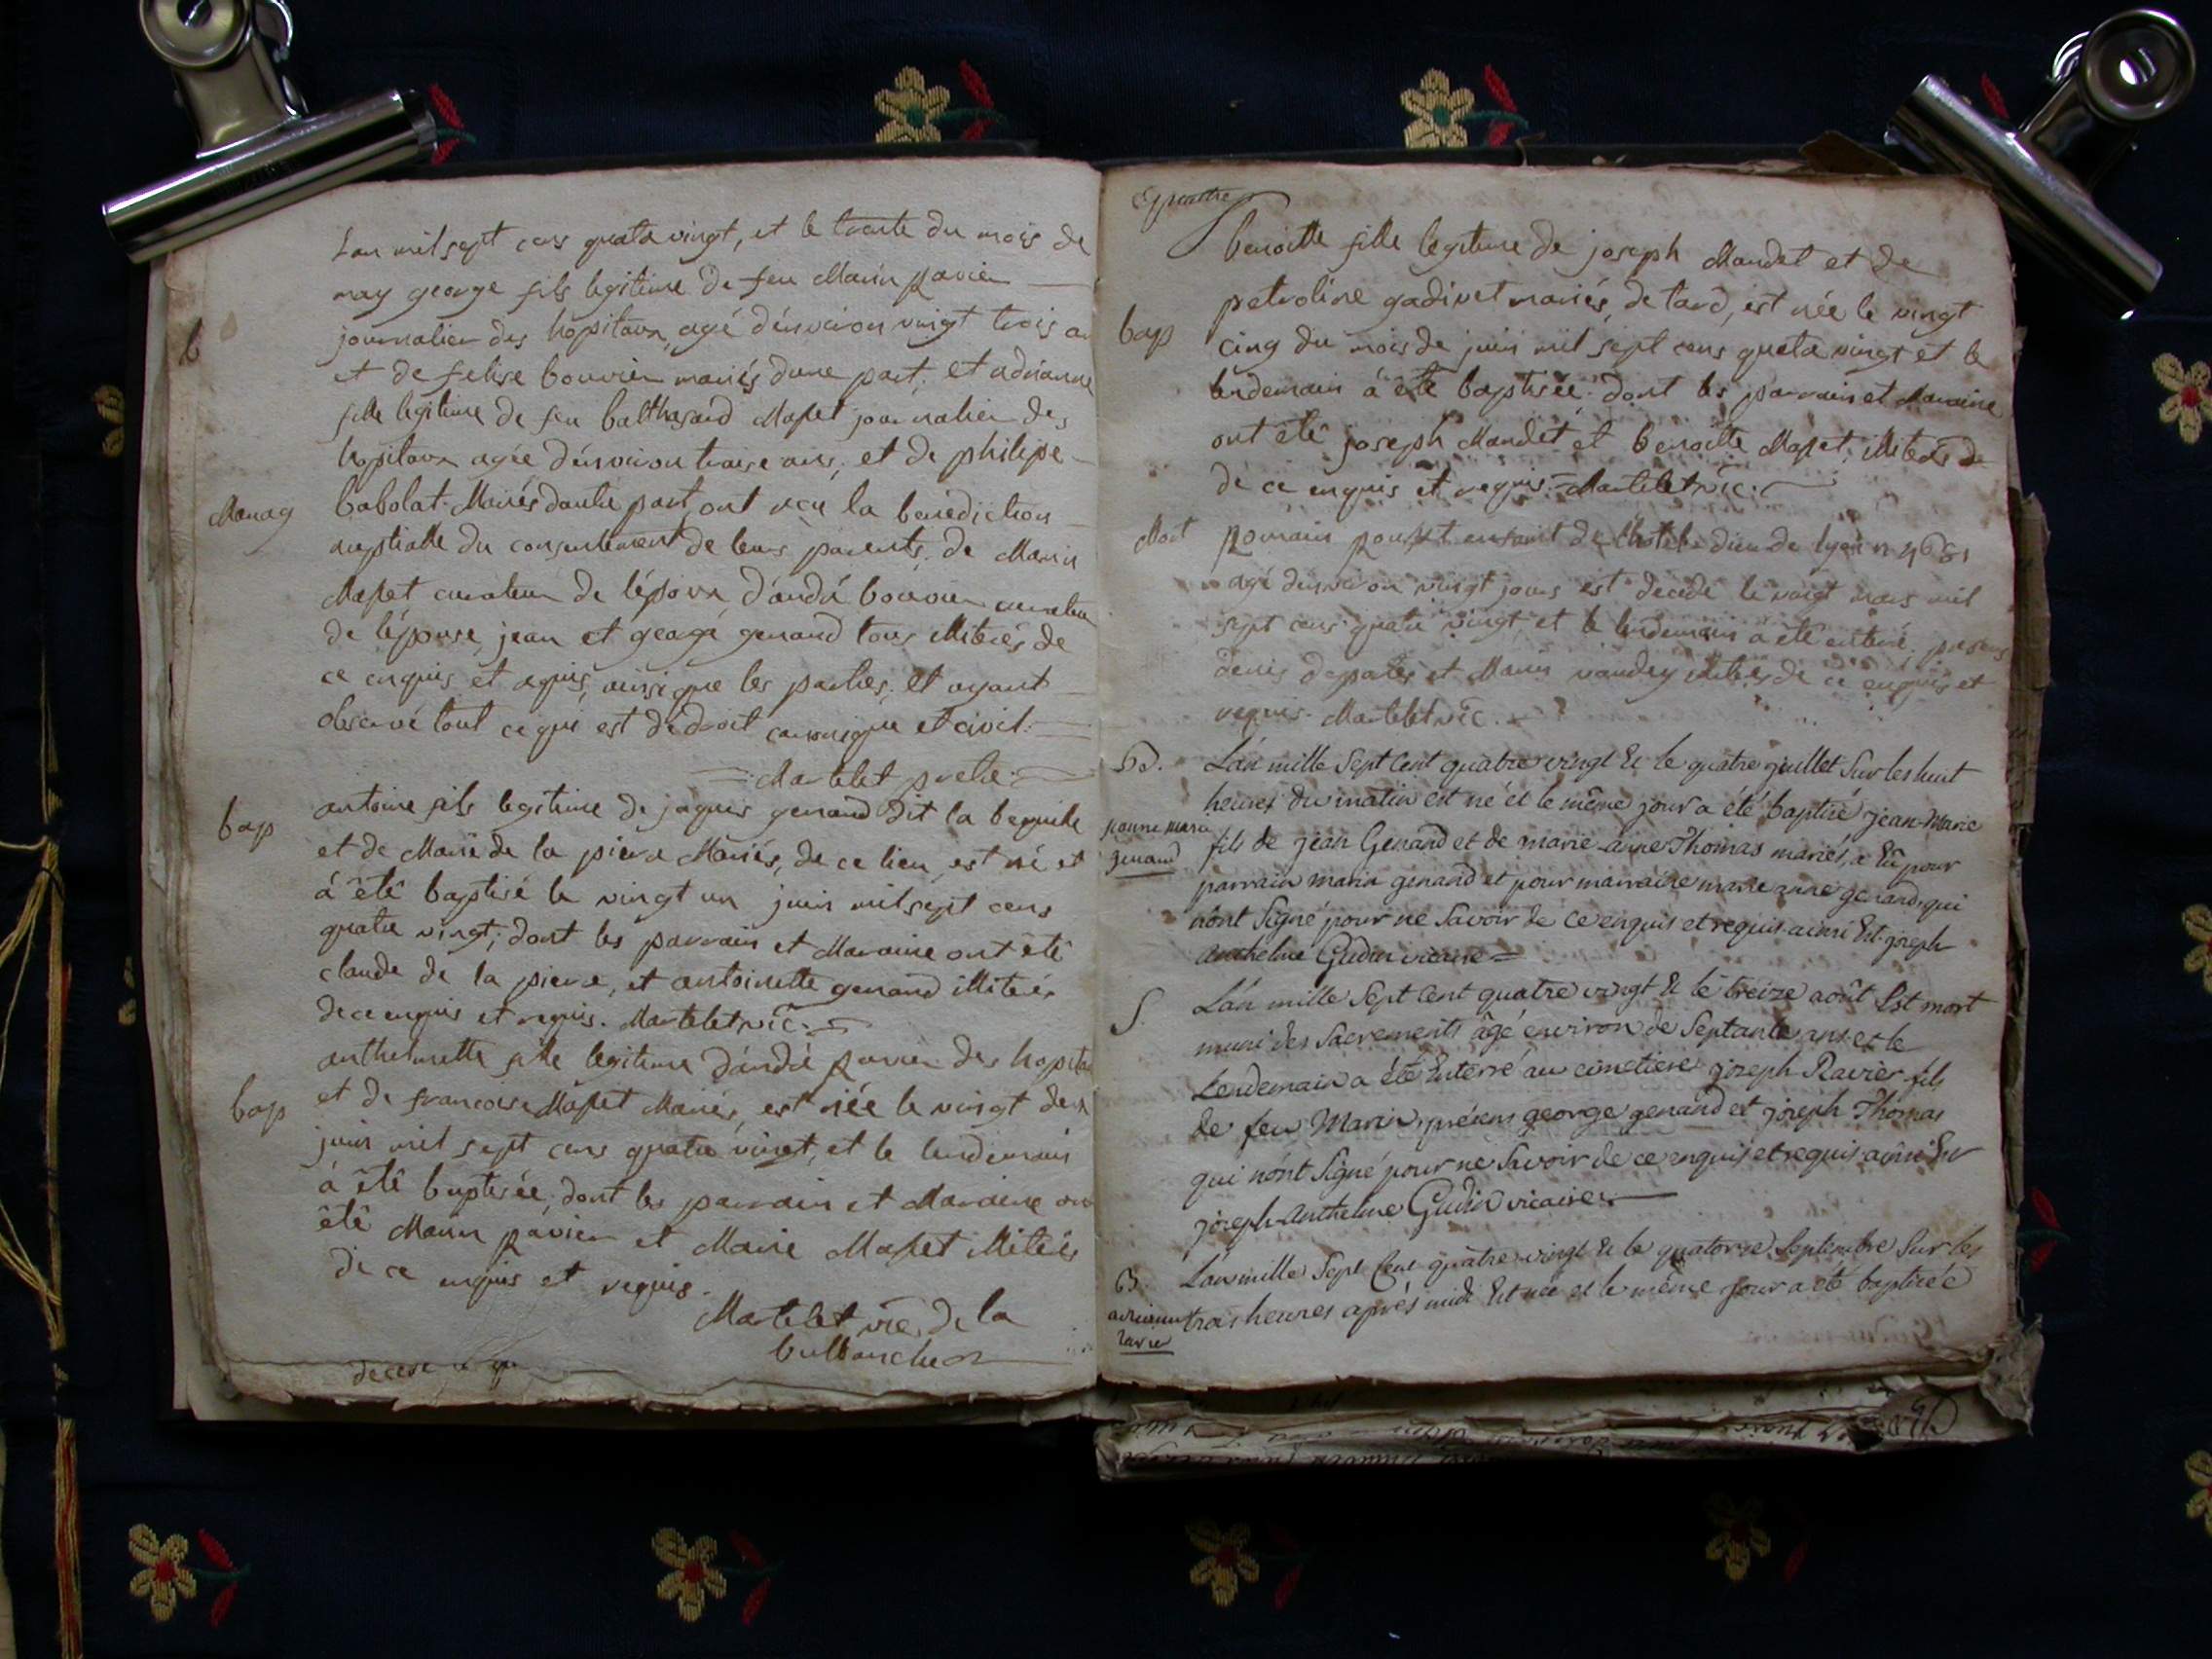 Lan mil sept cens quatavingt, et le trante du mois de
may george fils legitime de feu Marin ravier
journalier des hôpitaux, agé d'environ vingt trois an
et de felise bouvier mariés dune part, et adrianne
fille legitime de feu balthasard Mapet journalier des
hopitaux agée d'environ traise ans, et de philipe
Mariag
babolat Mariés dautre part, ont reçu la benédiction
nuptialle du consentement de leurs parents, de Marin
Mapet curateur de l'époux, d'andré bouvier curateur
de l'épouse, jean et george genand tous illiterés de
ce enquis et requis, ainsi que les parties, et ayant
observé tout ce qui est de droit canonique et civil.
Martelet prêtre
bap
antoine fils legitime de jaques genand dit la bequille
et de Marie de la piera Mariés, de ce lieu, est né et
à êtê baptisé le vingt un juin mil sept cens
quatre vingt; dont les parrain et Maraine ont êtê
claude de la piera, et antoinette genand illiterés
de ce enquis et requis. Martelet vic.
anthelmette fille legitime d'andré ravier des hopitau
bap
et de francoise Mapet Mariés, est née le vingt deux
juin mil sept cens quatre vingt, et le lendemain
à êtê baptisée; dont les parrain et Maraine on
êtê Marin ravier et Marie Mapet illiterés
de ce enquis et requis.
Martelet vic. de la
balbanche
benoitte fille legitime de joseph Mandet et de
petroline gadivet mariés, de tard, est née le vingt
bap
cinq du mois de juin mil sept cens quata vingt et le
lendemain à êtê baptisée; dont les parrain et Maraine
ont êtê joseph Mandet et benoitte Mapet, illiterés de
de ce enquis et requis. Martelet vic.
Mort
Romain enfant de l'hotel-dieu de lyon n 4681
agé d'environ vingt jours est décédé le vingt mars mil
sept cens quatre vingt, et le lendemain a été enterré, presens
denis et Marin vaudey illiterés de ce enquis et
requis. Martelet vic.
B. L'an mille Sept Cent quatre vingt & le quatre juillet Sur les huit
heures du matin est né et le même jour a été baptisé jean-Marie
jeanne marie
genand
fils de jean Genand et de marie-anne Thomas mariés, a Eû pour
parrain marin genand et pour marraine marie anne genand, qui
n'ont Signé pour ne Savoir de ce enquis et requis ainsi Est. joseph
Anthelme Gudin vicaire
S. L'an mille Sept Cent quatre vingt & le treize août Est mort
muni des Sacrements âgé environ de Septante ans et le
Lendemain a été Enterré au cimetiere joseph Ravier fils
de feu Marin, présens george genand et joseph Thomas
qui n'ont Signé pour ne Savoir de ce enquis et requis ainsi Est
joseph-Anthelme Gudin vicaire
B. L'an mille Sept Cent quatre-vingt & le quatorze Septembre Sur les
trois heures après midi Est née et le même jour a été baptisée